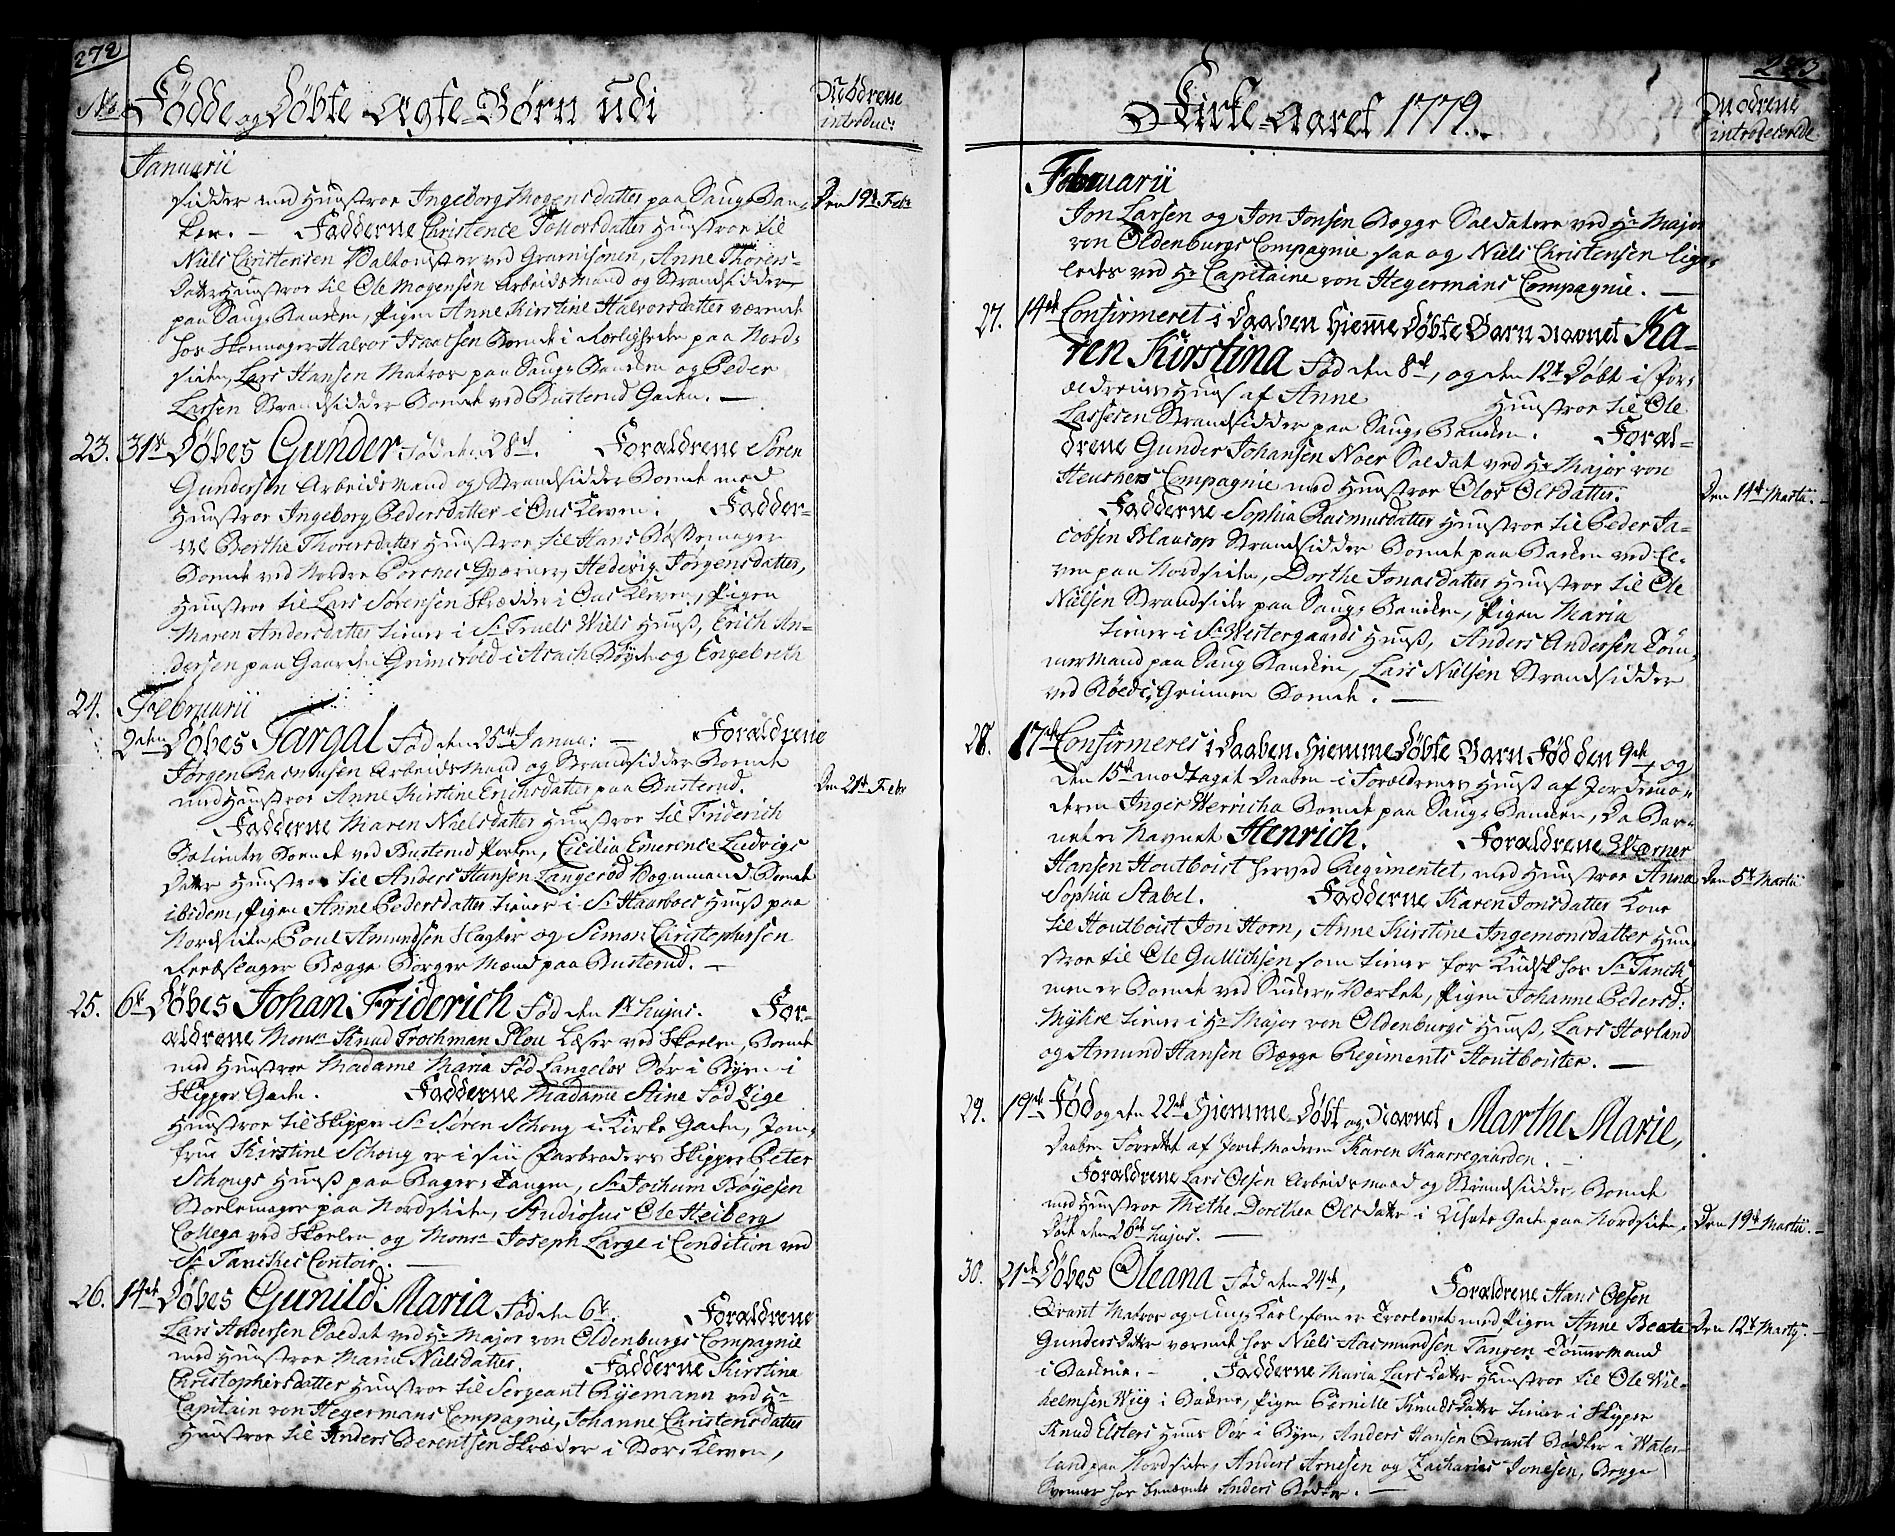 272
No. Fødde og Døbte Ægte-Børn udi
Mødrene
introduc:
Januarii
sidder med Hustroe Ingeborg Mogensdatter paa Saug-Ban-
Den 19de Febr
ken. — Fadderne Christence Tollorsdatter Hustroe til
Niels Christensen ved Gvarnisonen, Anne Thorers-
datter Hustroe til Ole Mogensen Arbeidsmand og Strandsidder
paa Saug-Bancken, Pigen Anne Kirstine Halvorsdatter værende
hos Skomager Halvor Isaacsen Boende i paa Nord-
siden, Lars Hansen Matros paa Saug-Bancken og Peder
Larsen Strandsidder Boende ved Busterud Gaden. —
23. 31te Døbes Gunder Fød den 28d. Forældrene Sören
Gundersen Arbeidsmand og Strandsidder Boende med
Hustroe Ingeborg Pedersdatter i Kleven. Fadder-
ne Berthe Thorersdatter Hustroe til Hans
Boende ved Nordre Porches Qværner, Hedevig Jörgensdatter,
Hustroe til Lars Sörensen Skrædder i Kleven, Pigen
Maren Andersdatter tiener i Sr Truels Wiels Huus, Erich An-
dersen paa Gaarden Grimsrold i Asach og Engebreth
24. Februarii
2den Døbes Targal Fød den 25de Janua: — Forældrene
Jørgen Rasmusen Arbeidsmand og Strandsidder Boende
med Hustroe Anne Kirstine Erichsdatter paa Busterud.
Den 21de Febr
Fadderne Maren Nielsdatter Hustroe til Friderich
Boende ved Busterud Porten, Cicilia Emerence Ludvigs
Datter Hustroe til Anders Hansen Langeröd Vognmand Boende
ibidem, Pigen Anne Pedersdatter tiener i Sr Haarboes Huus paa
Nordsiden, Poul Amundsen Slagter og Simon Christophersen
Bægge Borger Mænd paa Busterud. —
25. 6te Døbes Johan Friderich Fød den 1te hujus. For-
ældrene Monsr Knud Trochman Plou Læser ved Skoelen, Boende
med Hustroe Madame Maria Fød Langelov Sør i Byen i
Skipper Gaden. Fadderne Madame Stine Fød Lige
Hustroe til Skipper Sr Sören Schong i Kirke Gaden, Jom-
frue Kirstine Schong er i sin Farbroders Skipper Peter
Schongs Huus paa Rager-Tangen, Sr Jochum Böyesen
Stoelemager paa Nordsiden, Studiosus Ole Heiberg
Collega ved Skoelen og Monsr Joseph Large i Condition ved
Sr Tanches Contoir. —
26. 14de Døbes Gunild Maria Fød den 6te. Forældrene
Lars Andersen Soldat ved Hr Major von Oldenburgs Compagnie
med Hustroe Maria Nielsdatter. Fadderne Kirstina
Christophersdatter Hustroe til Sergeant Ryemann ved Hr
Capitain von Hegermans Compagnie, Johanne Christensdatter
Hustroe til Anders Berentsen Skræder i Stor-Kleven,
273.
Kirke-Aaret 1779.
Mødrene
introducerede
Februarii
Jon Larsen og Jon Jonsen Begge Soldatere ved Hr Major
von Oldenburgs Compagnie saa og Niels Christensen lige-
ledes ved Hr Capitaine von Hegermans Compagnie. —
27. 14de Confirmeret i Daaben Hiemme Døbte Barn Navnet Ka-
ren Kirstina Fød den 8de, og den 12te Døbt i For-
ældrenes Huus af Anne Hustroe til Ole
Lassesen Strandsidder paa Saug-Bancken. Foræl-
drene Gunder Johansen Noer Soldat ved Hr Major von
Heuchers Compagnie med Hustroe Olov Olsdatter.
Den 14de Martii. —
Fadderne Sophia Rasmusdatter Hustroe til Peder Ja-
cobsen Blaarop Strandsidder Boende paa Backen ved El-
ven paa Nordsiden, Dorthe Jonasdatter Hustroe til Ole
Nielsen Strandsider paa Saug-Bancken, Pigen Maria
tiener i Sr Westergaards Huus, Anders Andersen Töm-
mermand paa Saug Bancken, Lars Nielsen Strandsidder
ved Röeds-Grinnen Boende. —
28. 17de Confirmeres i Daaben Hiemme Døbte Barn Fød den 9de, og
den 15de modtaget Daaben i Forældrenes Huus af Jordemo-
deren Inger Werricha Boende paa Saug-Bancken, da Bar-
net er Navnet Henrich. Forældrene Werner
Hansen Houtboist her ved Regimentet, med Hustroe Anna
Den 5te Martii
Sophia Stabel. Fadderne Karen Jonsdatter Kone
til Houtboist Jon Horn, Anne Kirstine Ingemonsdatter Hu-
stroe til Ole Gullichsen som tiener for Kudsk hos Sr Tanch
men er Boende ved Sucker-Værket, Pigen Johanne Pedersd:
Myhre tiener i Hr Major von Oldenburgs Huus, Lars Hovland
og Amund Hansen Bægge Regiments Houtboister. —
29. 19de Fød og den 22de Hiemme Døbt og Navnet Marthe Marie,
Daaben Forrettet af Jordemoderen Karen Kaarregaarden. —
Forældrene Lars Olsen Arbeidsmand og Strandsidder, Boende
med Hustroe Methe Dorthea Olsdatter i Gade paa Nordsiden,
Den 19de Martii. —
Døbt den 26de hujus. —
30. 21de Døbes Oleana Fød den 24de, Forældrene Hans Olsen
Qvant Matros og ung Karl, som er Trolovet med Pigen Anne Beate
Den 12te Martij. —
Gundersdatter værende hos Niels Aasmundsen Tangen Tömmermand
i Backen. — Fadderne Maria Larsdatter Hustroe til Ole Wil-
helmsen Wiig i Backen, Pigen Pernille Knudsdatter tiener i Skipper
Knud Elsters Huus Sör i Byen, Anders Hansen Qvant Bödker i Water-
land paa Nordsiden, Anders Arnesen og Zacharias Jonesen, Begge
Svenner hos benævnte Anders Bödker. —